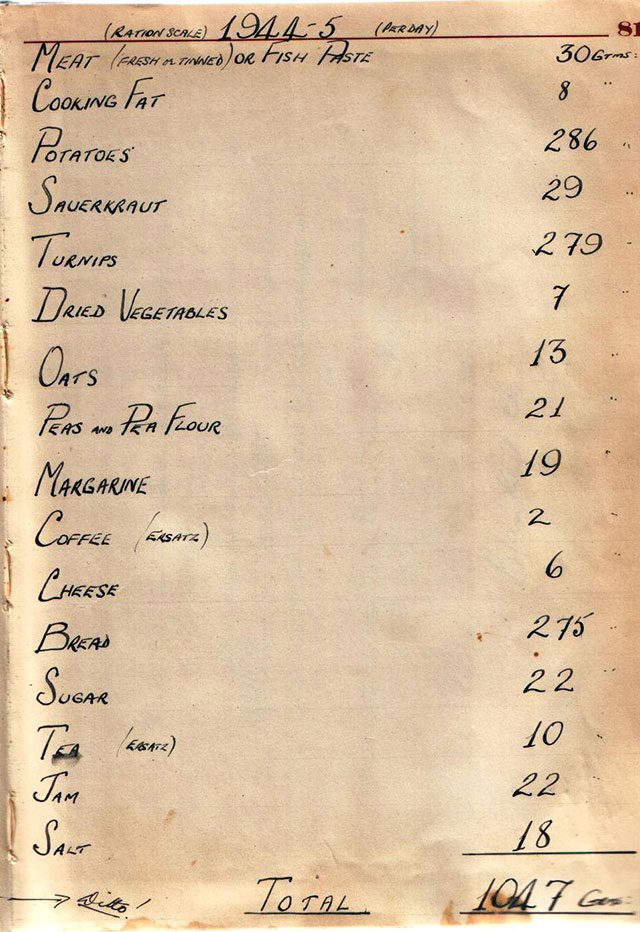 (RATION SCALE) 1944-5 (PER DAY) 81
MEAT (FRESH OR TINNED) OR FISH PASTE 30 GRMS:
COOKING FAT 8 "
POTATOES 286 "
SAUERKRAUT 29 "
TURNIPS 279 "
DRIED VEGETABLES 7 "
OATS 13 "
PEAS AND PEA FLOUR 21 "
MARGARINE 19 "
COFFEE (ERSATZ) 2 "
CHEESE 6 "
BREAD 275 "
SUGAR 22 "
TEA (ERSATZ) 10 "
JAM 22 "
SALT 18 "
Ditto! TOTAL 1047